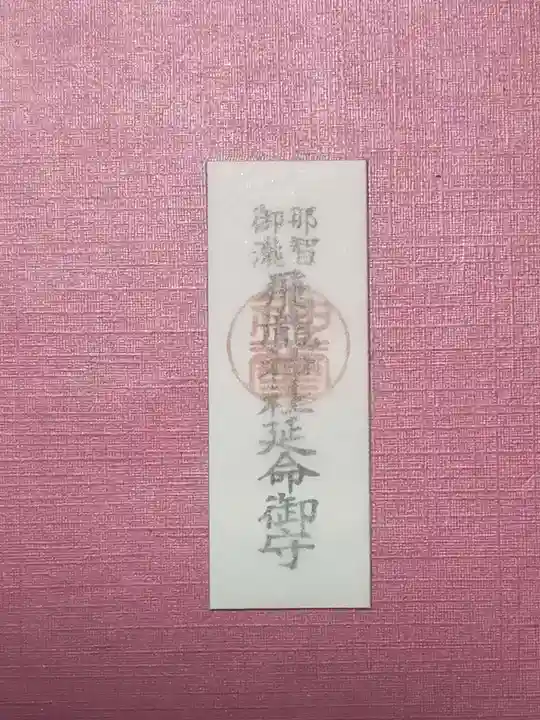 那智
御瀧
飛瀧神社延命御守